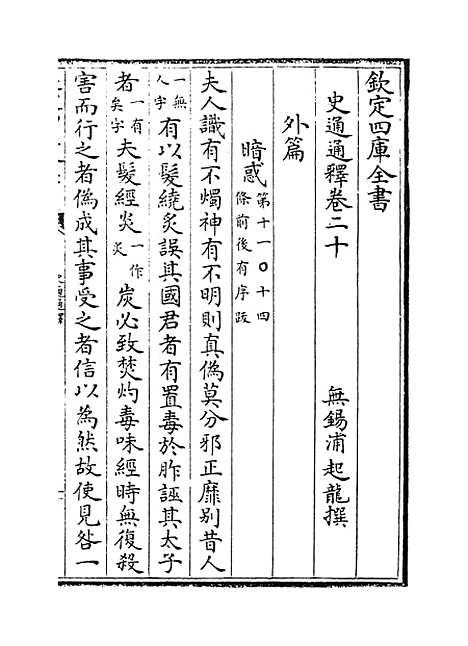 欽定四庫全書
史通通釋卷二十　無錫浦起龍撰
外篇
暗惑 第十一〇十四條前後有序跋
夫人識有不燭神有不明則真偽莫分邪正靡別昔人
一無人字 有以髮繞炙誤其國君者有置毒於胙誣其太子
者 一有矣字 夫髮經炎 一作炎 炭必致焚灼毒味經時無復殺
害而行之者偽成其事受之者信以為然故使見咎一